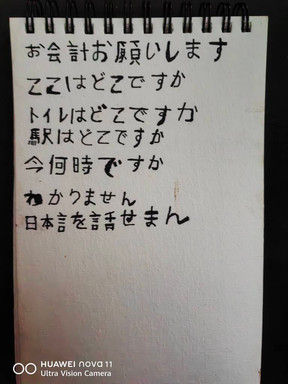 お会計お願いします
ここはどこですか
トイレはどこですか
駅はどこですか
今何時ですか
わかりません
日本言を話せまん
HUAWEI nova 11
Ultra Vision Camera